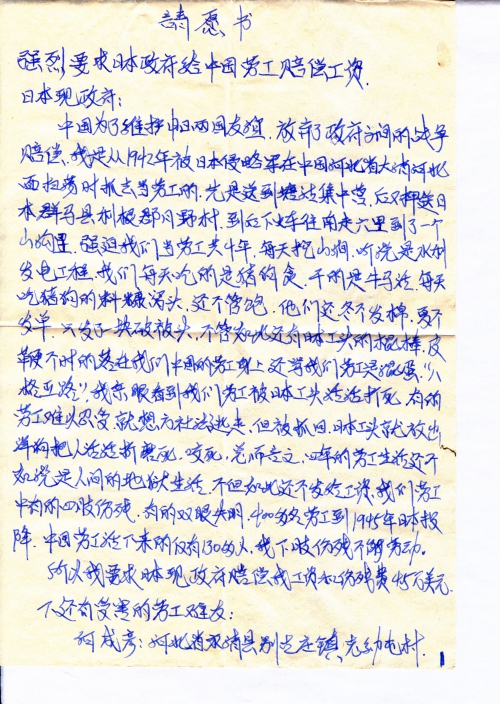 請愿书
强烈要求日本政府给中国劳工赔偿工资.
日本现政府:
中国为了维护中日两国友谊, 放弃了政府之间的战争
赔偿, 我是从1942年被日本侵略军在中国河北省大清河北
面扫荡时抓去当劳工的, 先是送到塘沽集中营, 后又押送日
本群马县利根郡月野村, 到后下火车往南走六里到了一个
山沟里, 强迫我们当劳工共4年, 每天挖山洞, 听说是水利
发电工程, 我们每天吃的是猪狗食, 干的是牛马活, 每天
吃猪狗的料糠窝头, 还不管饱, 他们还冬不发棉, 夏不
发单, 只发了一块破被头, 不管如此还有日本工头的棍棒, 皮
鞭不时的落在我们中国的劳工身上还骂我们劳工是混蛋, "八
格亚路", 我亲眼看到我们劳工被日本工头活活打死, 有的
劳工难以忍受就想方社法逃走, 但被抓回, 日本工头就放出
洋狗把人活活折磨死, 咬死, 总而言之, 四年的劳工生活还不
如说是人间的地狱生活, 不但如此还不发给工资, 我们劳工
中有的四肢伤残, 有的双眼失明, 400多名劳工到1945年日本投
降, 中国劳工活下来的仅有130多人, 我下肢伤残不能劳动。
所以我要求日本现政府赔偿我工资和伤残费45万美元.
下还有受害的劳工难友:
成彦: 河北省清县别古庄镇, 村.
1